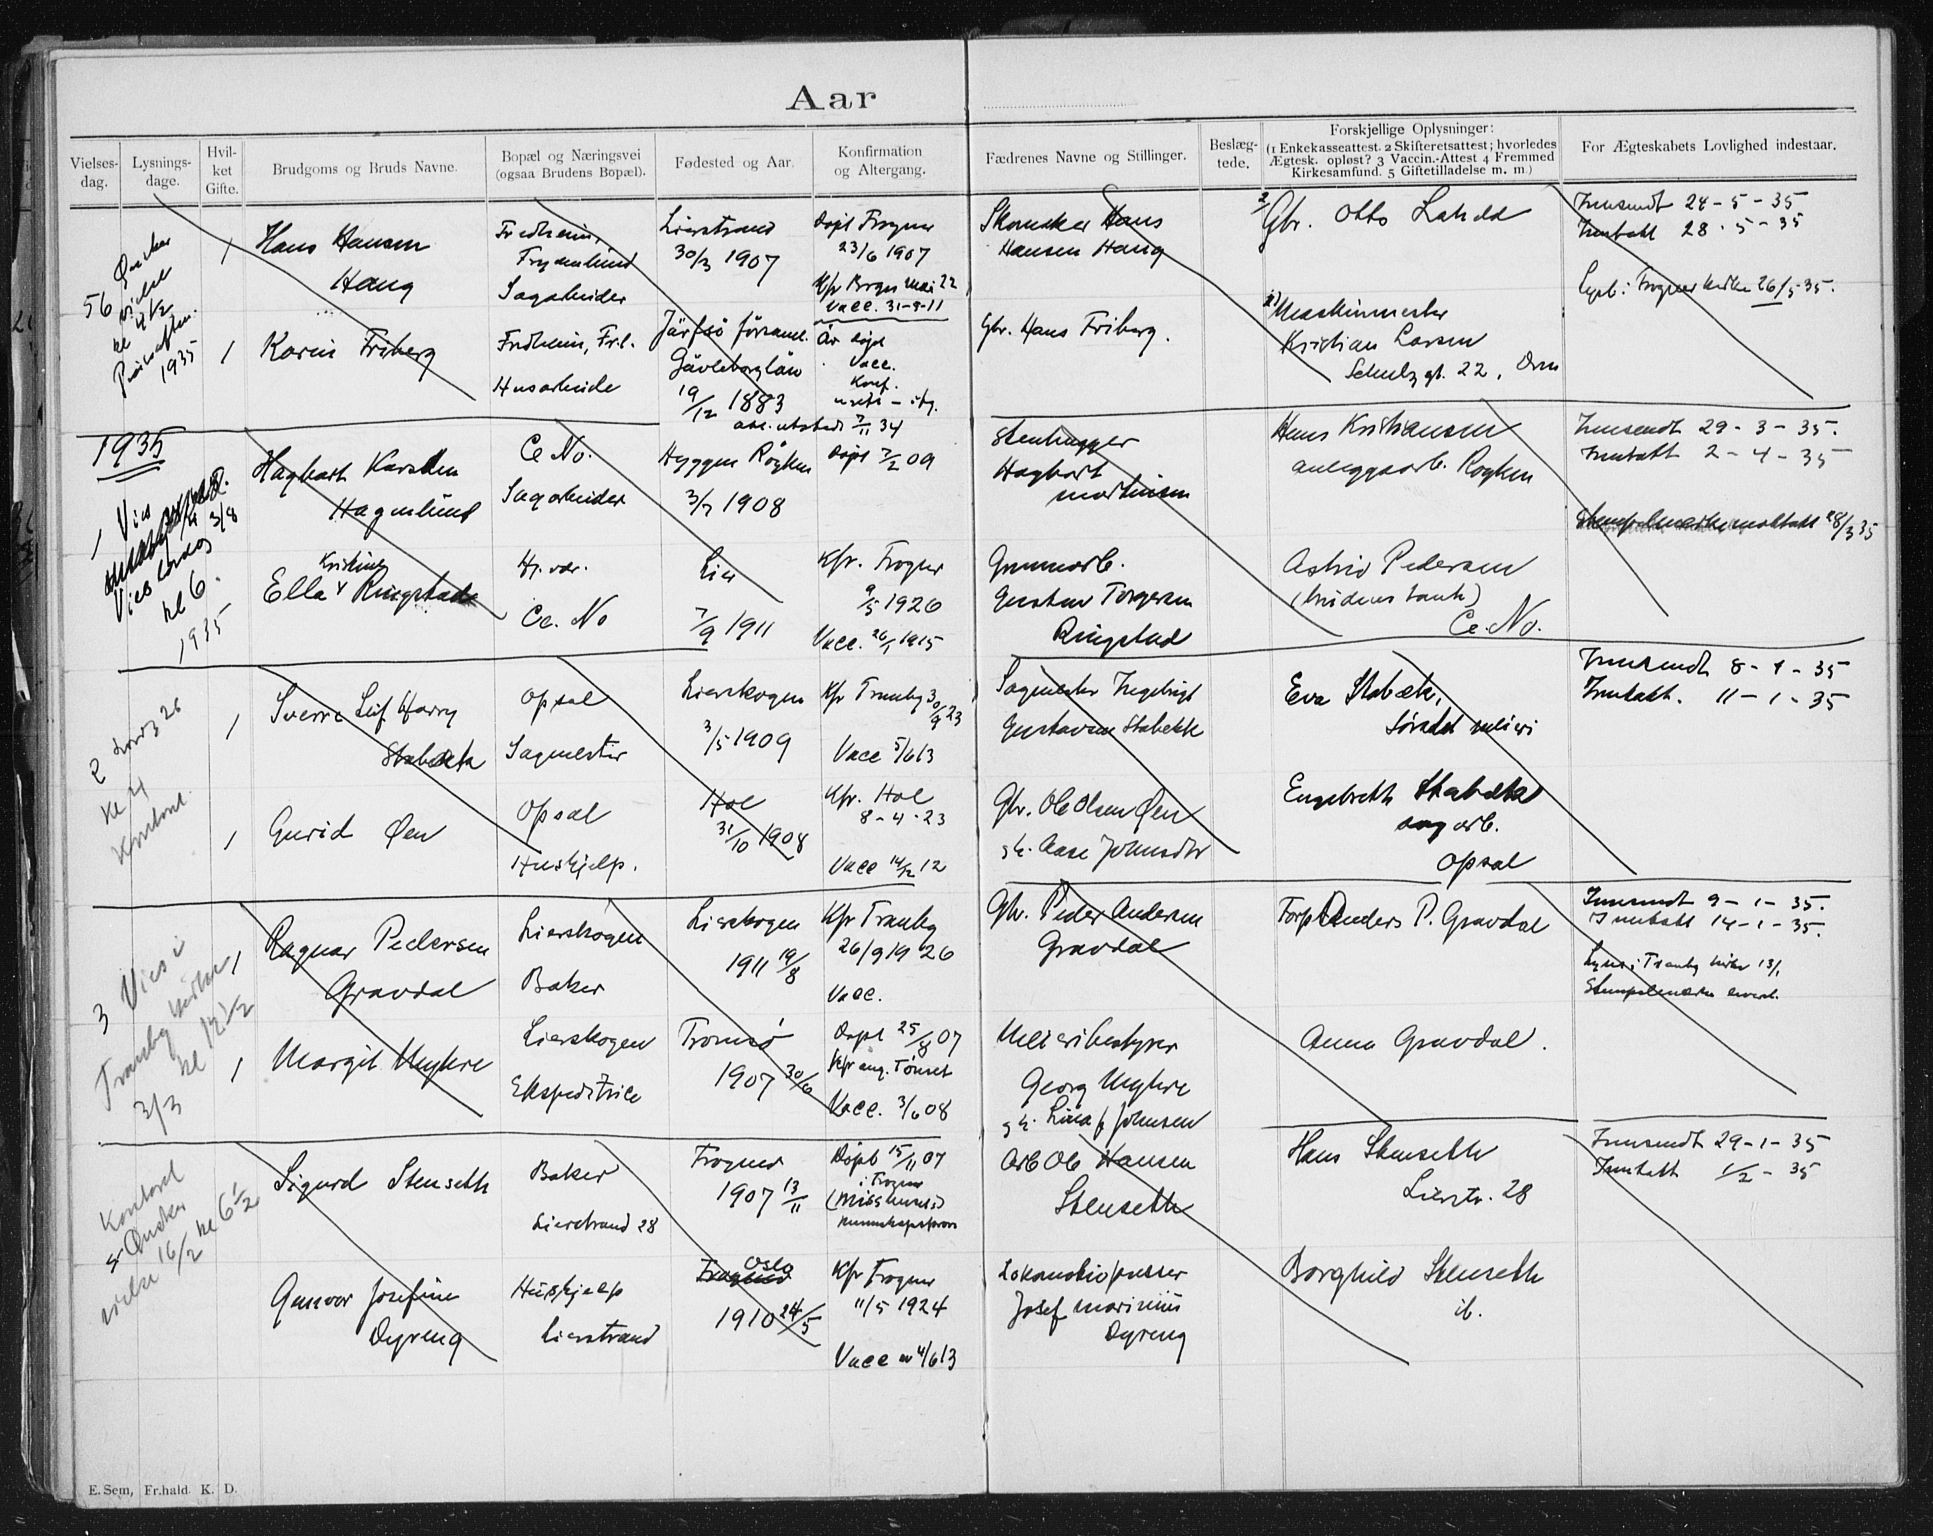 Aar
Vielses-dag.
Lysnings-dage.
Hvil-ket Gifte.
Brudgoms og Bruds Navne.
Bopæl og Næringsvei (ogsaa Brudens Bopæl).
Fødested og Aar.
Konfirmation og Altergang.
Fædrenes Navne og Stillinger.
Beslæg-tede.
Forskjellige Oplysninger: (1 Enkekasseattest. 2 Skifteretsattest; hvorledes Ægtesk. opløst? 3 Vaccin.-Attest 4 Fremmed Kirkesamfund. 5 Giftetilladelse m. m.)
For Ægteskabets Lovlighed indestaar.
56 Ønsker
vielse
kl 4½
Pinseaften
1935
1
Hans Hansen
Haug
Fredheim,
Frydenlund
Sagarbeider
Lierstrand
30/3 1907
Døpt Frogner
23/6 1907
Kfr Borgen mai 22
Vacc. 31-5-11
Skomaker Hans
Hansen Haug
2/ Gbr. Otto
Innsendt 24-5-35
Inntatt 28-5-35
Lyst i Frogner kirke 26/5-35.
1
Karin Friberg
Fredheim, Frl.
Husarbeide
Järfsö församl.
Gävleborg län
19/12 1883
Är döpt
Vacc.
Konf.
7/11 34
Gbr. Hans Friberg.
1) Maskinmester
Kristian Larsen
Schultz gt. 22, Drm
1935
1 Vies
3/8
Vies lørdag
kl 6.
1935
Hagbart Karsten
Hagenlund
Ce. No.
Sagarbeider
Hyggen Røyken
3/7 1908
Døpt 7/2 09
Stenhugger
Hagbart
Martinsen
Hans Kristiansen
anleggsarb. Røyken
Innsendt 29-3-35.
Inntatt 2-4-35
Stempelmerke mottatt 28/3 35
Kristine
Ella Ringstad
Hj. vær.
Ce. No
Lier
7/9 1911
Kfr. Frogner
9/5 1926
Vacc. 26/1 1915
Grunnarb.
Gustav Torgersen
Ringstad
Astrid Pedersen
(brudens tante)
Ce. No.
2 26
Kl 4
Kontoret
1
Sverre Leif Harry
Stabekk
Opsal
Sagmester
Lierskogen
3/5 1909
Kfr Tranby 30/9 23
Vacc 5/6 13
Sagmester Ingebrigt
Gustavsen Stabekk
Eva Stabæk,
Sørsdal meieri
Innsendt 8-1-35
Inntatt. 11-1-35
1
Gurid Øen
Opsal
Huskjelp.
Hol
31/10 1908
Kfr. Hol
8-4-23
Vacc 14/12 12
Gbr. Ole Olsen Øen
g.h. Aase Johnsdtr
Engebreth Stabæk
sagarb.
Opsal
3 Vies i
Tranby kirke
kl 12½
3/3
1
Ragnar Pedersen
Gravdal
Lierskogen
Baker
Lierskogen
1911 19/8
Kfr Tranby
26/9 1926
Vacc.
Gbr. Peder Andersen
Gravdal
Forp. Anders P. Gravdal
Innsendt 9-1-35.
Inntatt 14-1-35.
Lyst i Tranby kirke 13/1
Stempelmerke
1
Margit Myhre
Lierskogen
Ekspeditrice
Tromsø
1907 30/6
Døpt 25/8 07
Kfr aug. Tønset
Vacc. 3/6 08
Meieribestyrer
Georg Myhre
g.h. Lina f. Johnsen
Anna Gravdal.
Kontoret
4 Ønsker
vielse 16/2 kl 6½
Sigurd Stenseth
Baker
Lierstrand 28
Frogner
1907 13/11
Døpt 15/11 07
i Frogner
Arb Ole Hansen
Stenseth
Hans Stenseth
Lierstr. 28
Innsendt 29-1-35
Inntatt 1/2-35
Gunvor Josefine
Dyreng
Huskjelp
Lierstrand
Oslo
1910 24/5
Kfr Frogner
11/5 1924
Vacc av 4/6 13
Lokomotivpusser
Josef Marinius
Dyreng
Borghild Stenseth
ib.
E. Sem, Fr.hald. K. D.